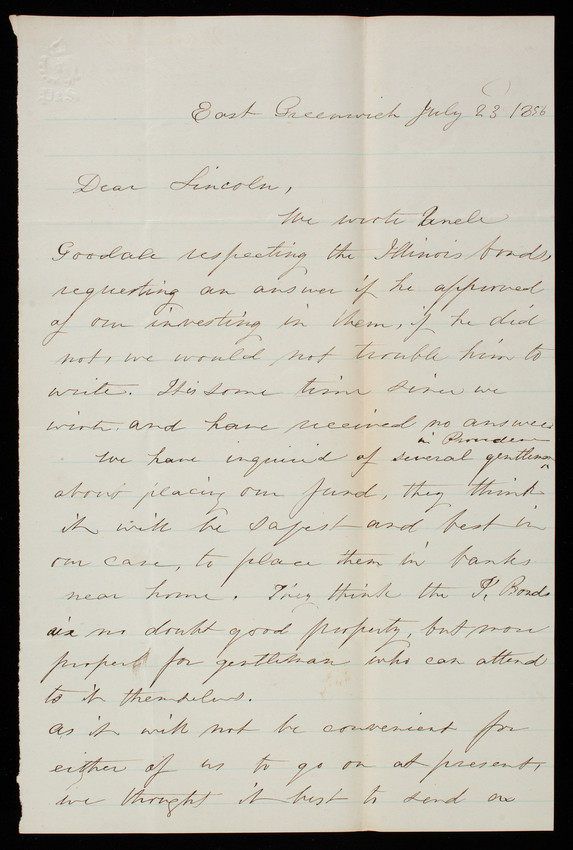 East Greenwich July 23 1856
Dear Lincoln,
We wrote Uncle
Goodale respecting the Illinois bonds,
requesting an answer if he approved
of our investing in them, if he did
not, we would not trouble him to
write. It is some time since we
wrote and have received no answer
in Providence
We have inquired of several gentlemen
about placing our fund, they think
it will be safest and best in
our case, to place them in banks
near home. They think the I. Bonds
are no doubt good property, but more
proper for gentleman who can attend
to it themselves.
as it will not be convenient for
either of us to go on at present,
we thought it best to send an